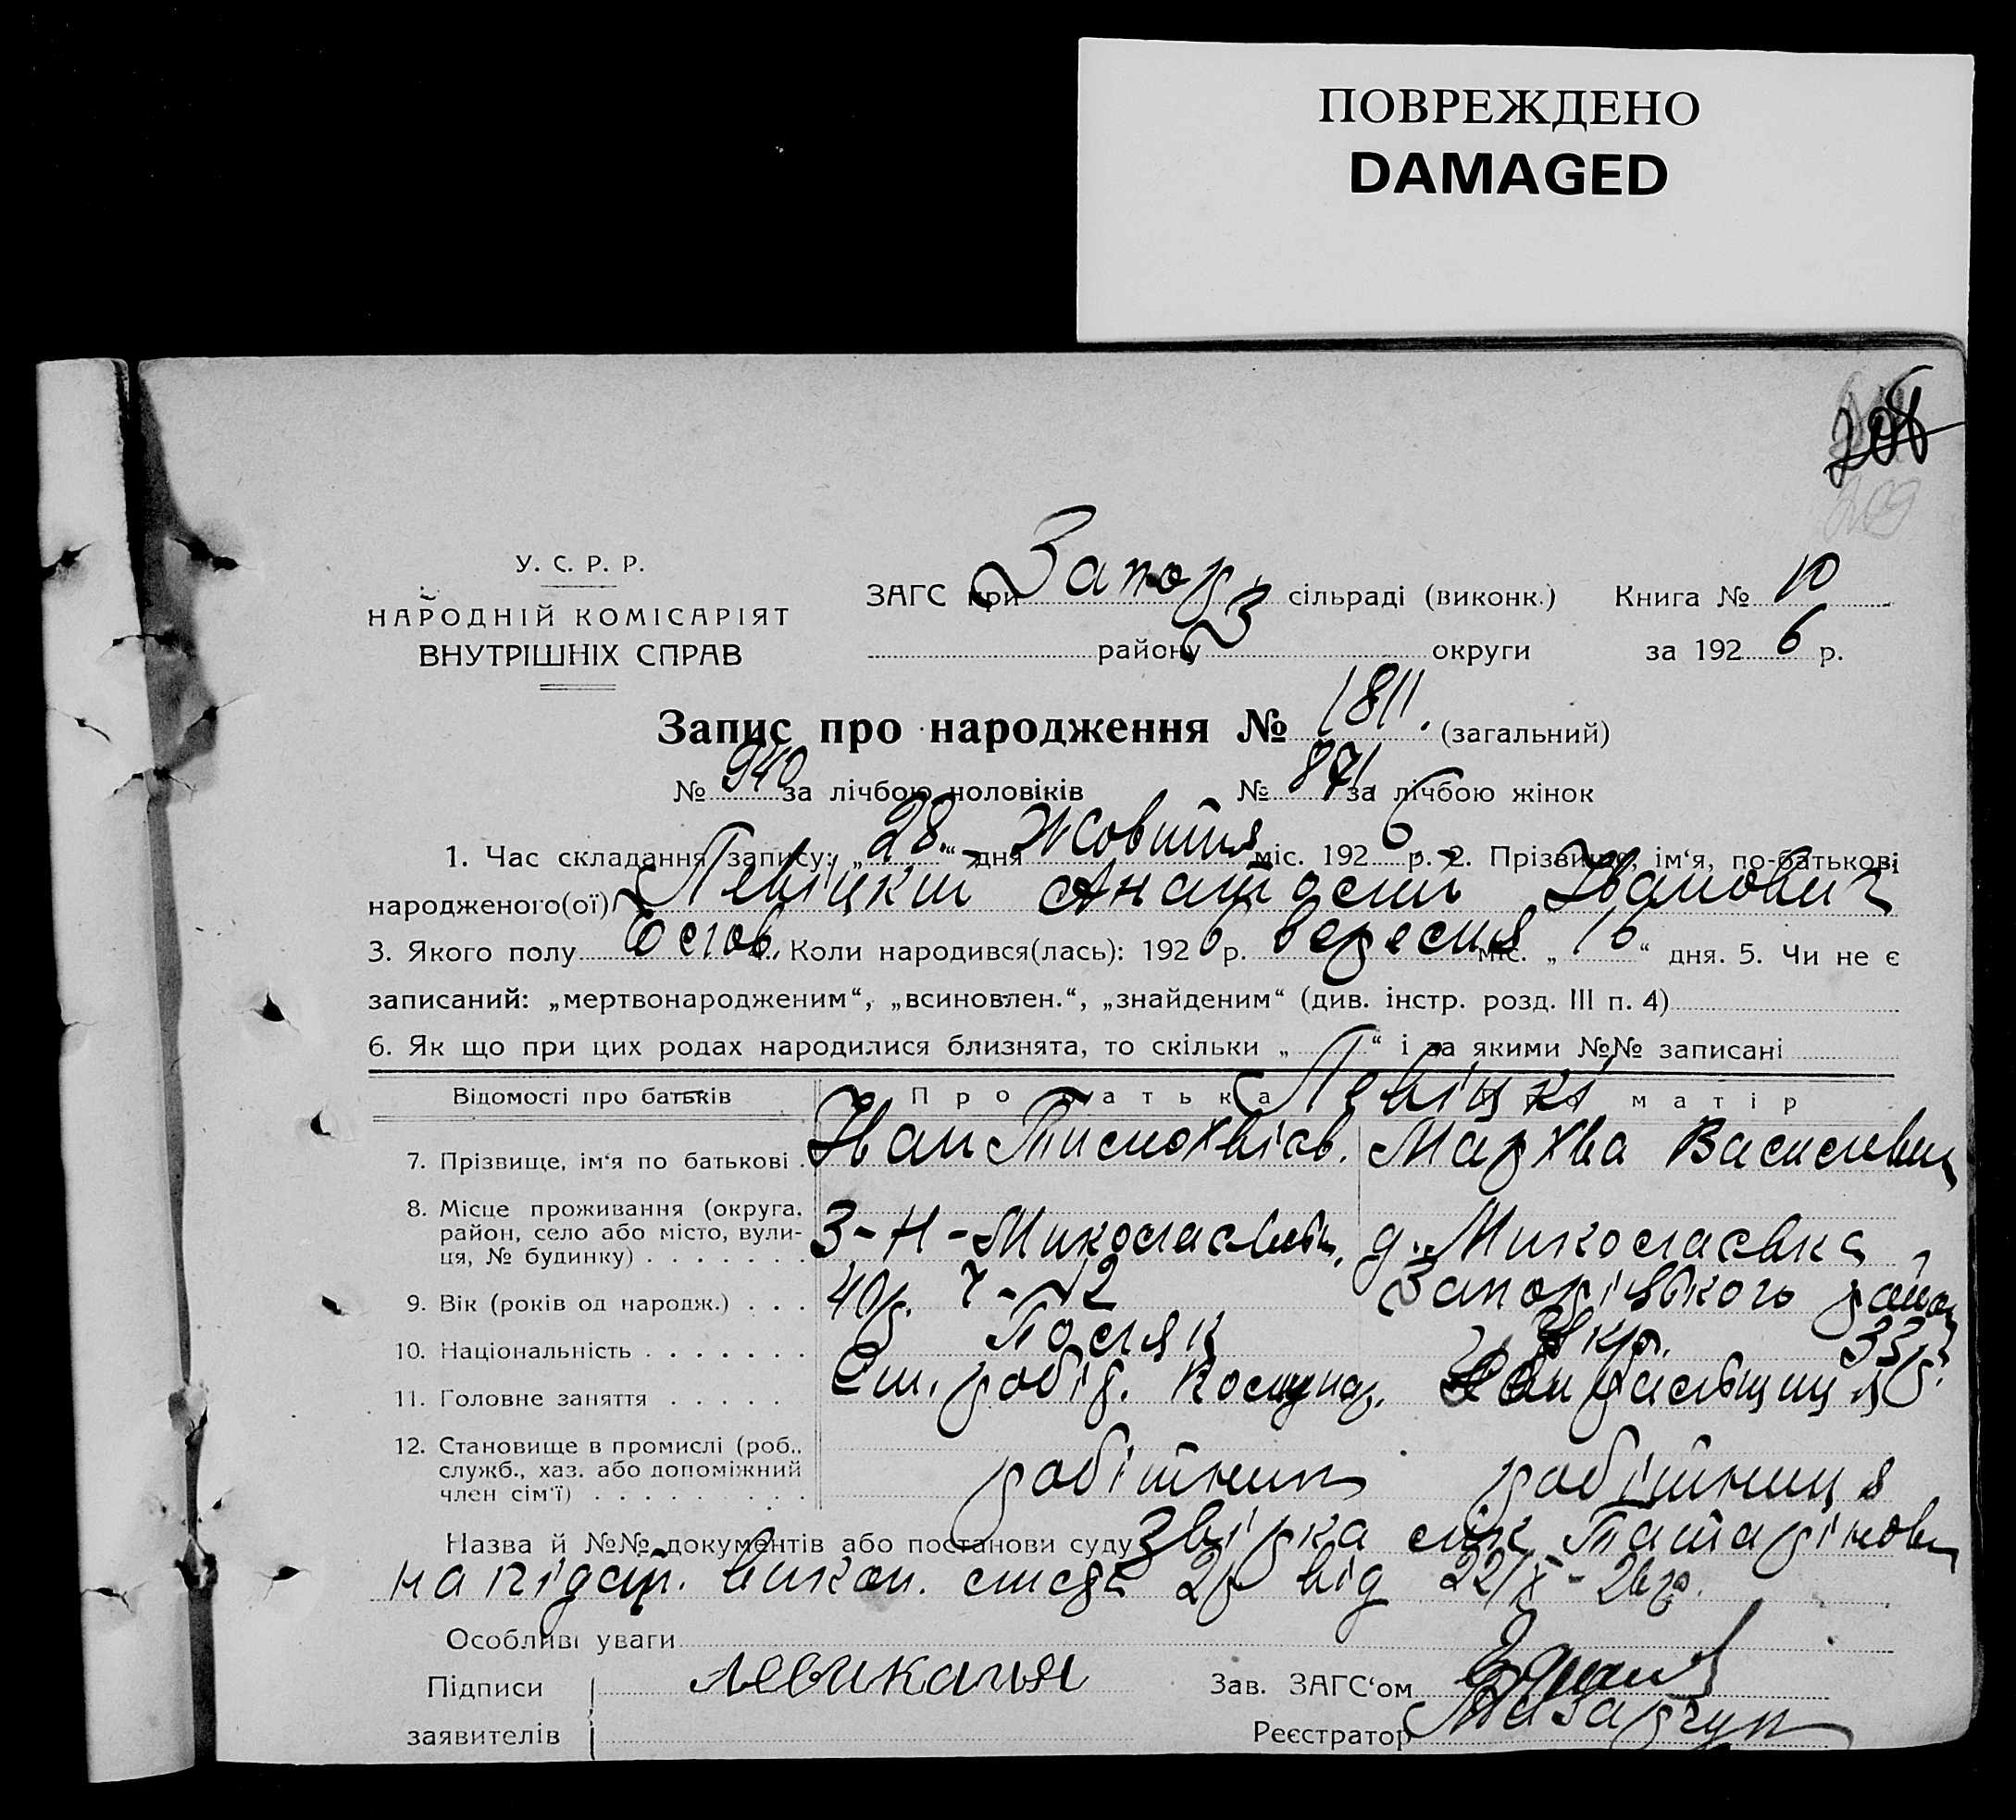 ПОВРЕЖДЕНО
DAMAGED
208
209
У. С. Р. Р.
НАРОДНІЙ КОМІСАРІЯТ
ВНУТРІШНІХ СПРАВ
ЗАГС при Запор. сільраді (виконк.) Книга № 10
району З округи за 1926 р.
Запис про народження № 1811. (загальний)
№ 940 за лічбою чоловіків № 871 за лічбою жінок
1. Час складання запису: „28“ дня Жовтня міс. 1926 р. 2. Прізвище, ім‘я, по-батькові
народженого(ої) Левіцкий Анатолій Іванович
3. Якого полу чолов. Коли народився(лась): 1926 р. вересня міс. „16“ дня. 5. Чи не є
записаний: „мертвонародженим“, „всиновлен.“, „знайденим“ (див. інстр. розд. III п. 4)
6. Як що при цих родах народилися близнята, то скільки „ “ і за якими №№ записані
Відомості про батьків Про батька Про матір
Левіцкі
7. Прізвище, ім‘я по батькові Іван Тимохвієв. Мархва Василевн
8. Місце проживання (округа, район, село або місто, вулиця, № будинку) З-Н-Миколаевка, д. Миколаевка
Запорізького район
9. Вік (років од народж.) 40р. 33р.
10. Національність Поляк Укр.
11. Головне заняття робід.
12. Становище в промислі (роб., служб., хаз. або допоміжний член сім‘ї) робітник робітниця
Назва й №№ документів або постанови суду Звірка Татарінови
на підст. викон. від 22/X-26р.
Особливі уваги
Підписи заявителів Зав. ЗАГС‘ом
Реєстратор